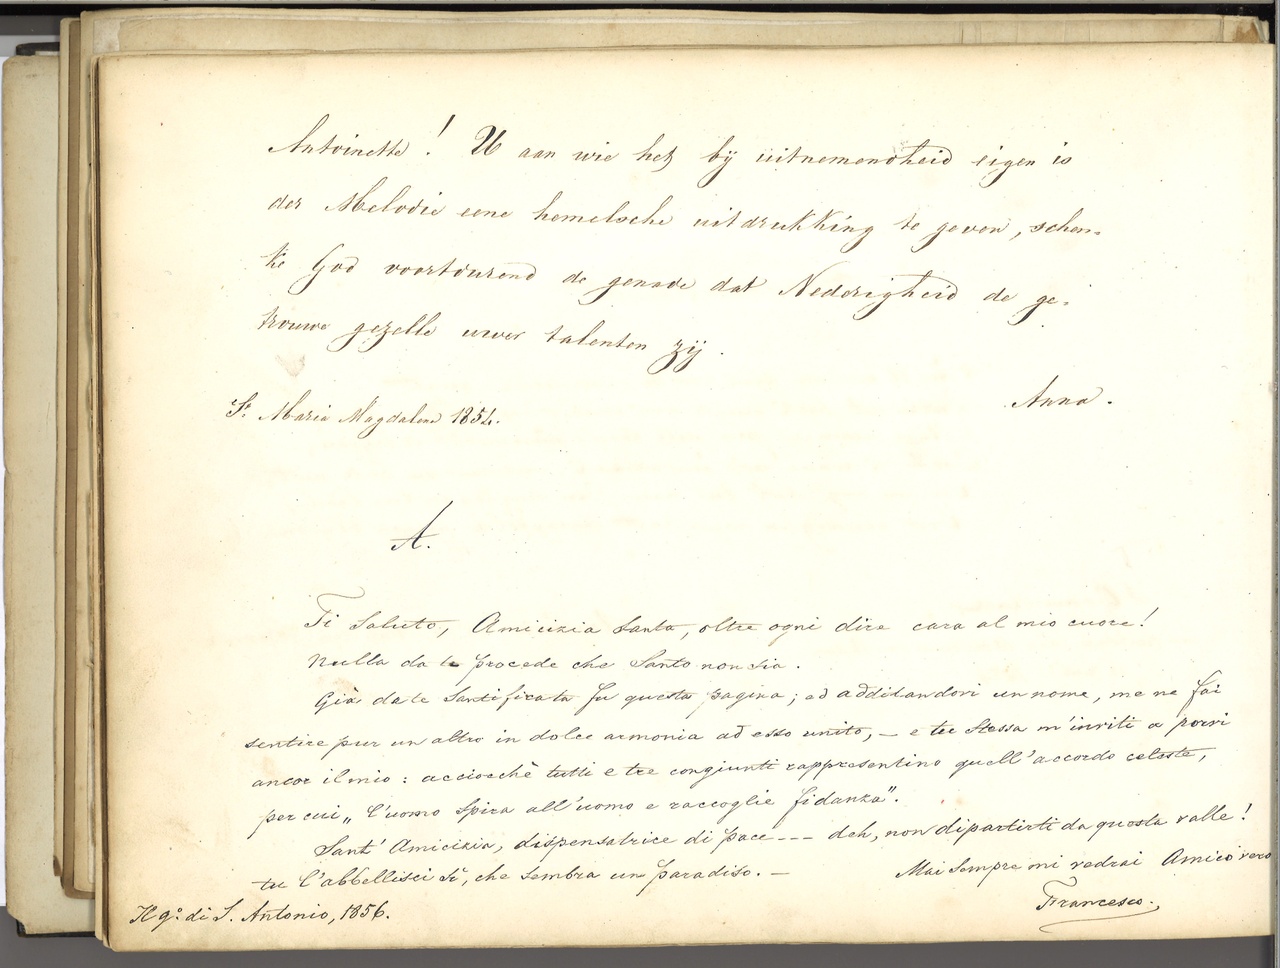 Antoinette! U aan wie het bij uitnemendheid eigen is
der Melodie eene hemelsche uitdrukking te geven, schen=
ke God voortdurend de genade dat Nederigheid de ge=
trouwe gezelle uwer talenten zij.
Anna.
St. Maria Magdalena 1854.
A.
Ti Saluto, Amicizia Santa, oltre ogni dire cara al mio cuore!
Nulla da te procede che Santo non sia.
Già da te Santificata fu questa pagina; ed additandovi un nome, me ne fai
sentire pur un altro in dolce armonia ad esso unito, — e tu stessa m'inviti a porvi
ancor il mio: acciocchè tutti e tre congiunti rappresentino quell'accordo celeste,
per cui „ l'uomo spira all'uomo e raccoglie fidanza".
Sant' Amicizia, dispensatrice di pace --- deh, non dipartirti da questa valle!
tu l'abbellisci sì, che sembra un paradiso. —
Mai sempre mi vedrai Amico vero
Francesco.
Il go. di S. Antonio, 1856.